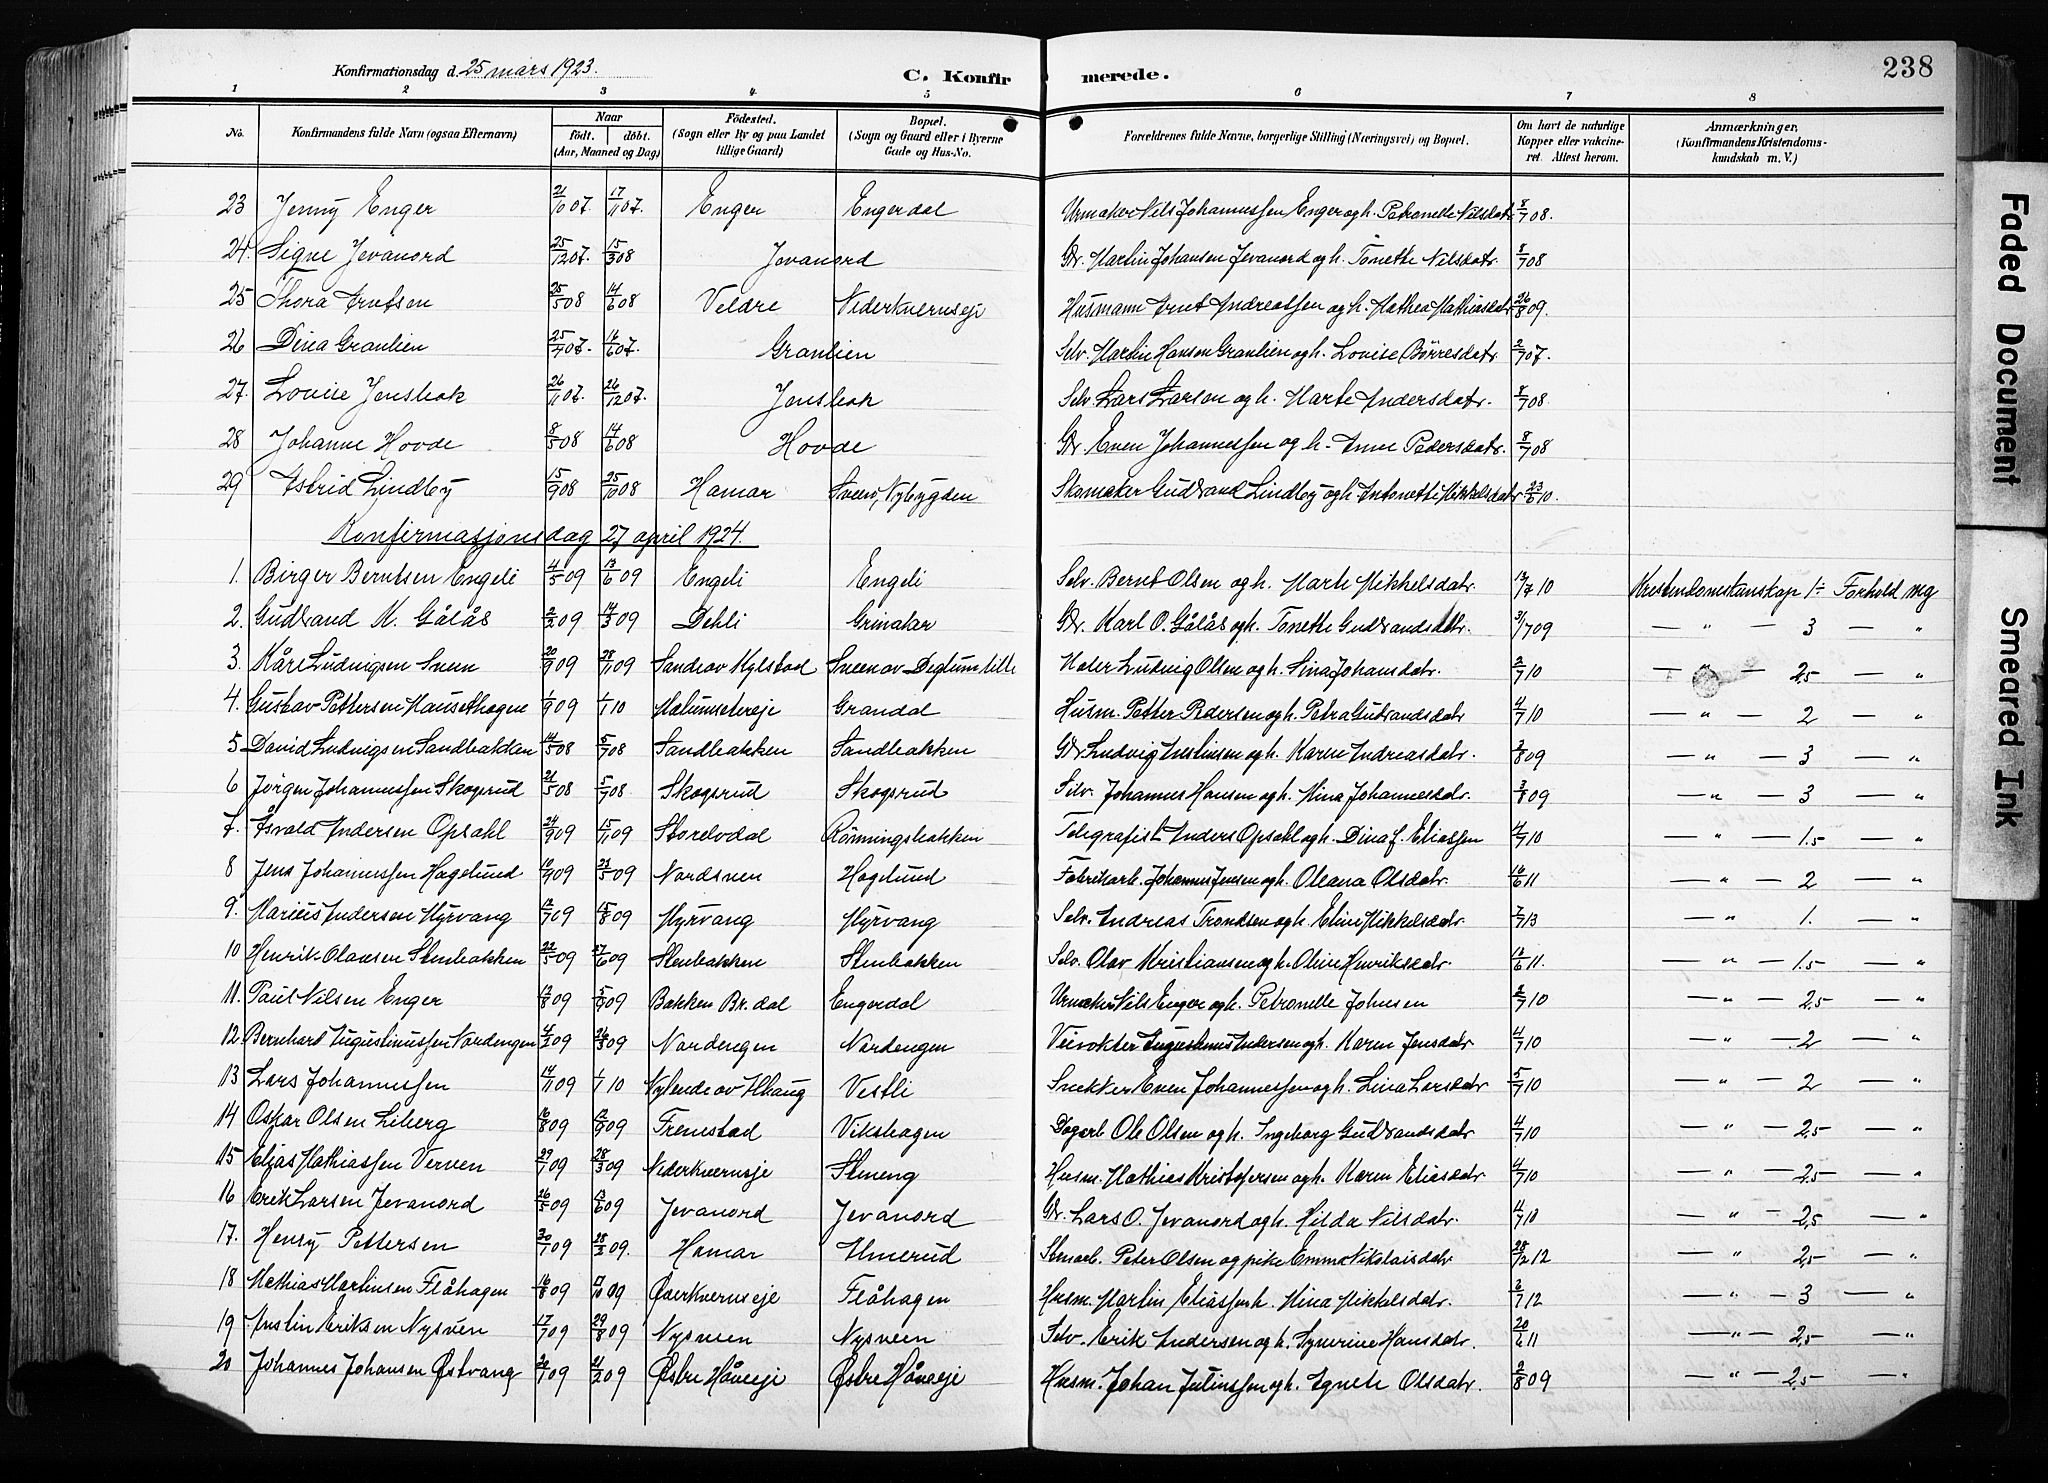 Konfirmationsdag d. 25 mars 1923. C. Konfirmerede. 238
1 2 3 4 5 6 7 8
No. Konfirmandens fulde Navn (ogsaa Efternavn) Naar født. døbt. (Aar, Maaned og Dag) Fødested. (Sogn eller By og paa Landet tillige Gaard) Bopæl. (Sogn og Gaard eller i Byerne Gade og Hus-No. Forældrenes fulde Navne, borgerlige Stilling (Næringsvei) og Bopæl. Om havt de naturlige Kopper eller vakcineret. Attest herom. Anmærkninger. (Konfirmandens Kristendomskundskab m. V.)
23 Jenny Enger 21/10 07. 17/11 07. Enger Engerdal Urmaker Nils Johannessen Enger og h. Petronelle Nilsdatr. 8/7 08.
24. Signe Jevanord 25/12 07. 15/3 08 Jevanord Gbr. Martin Johansen Jevanord og h. Tonette Nilsdatr. 8/7 08
25 Thora Arntsen 25/5 08 14/6 08 Veldre Nederkvernseje Husmann Arnt Andreassen og h. Mathea Mathiasdatr. 26/8 09.
26 Dina Granlien 25/4 07. 16/6 07. Granlien Selv. Martin Hansen Granlien og h. Lovise Børresdatr. 2/7 07.
27. Lovise Jensbak 26/11 07. 26/12 07. Jensbak Selv. Lars Larsen og h. Marte Andersdatr. 8/7 08
28 Johanne Hovde 8/5 08 14/6 08 Hovde Gbr. Even Johannessen og h. Anne Pedersdatr. 8/7 08
29 Astrid Lindby 15/9 08 25/10 08 Hamar Sveen, Nybygden Skomaker Gudbrand Lindby og h. Antonette Mikkelsdatr 23/6 10.
Konfirmasjonsdag 27 april 1924.
1. Birger Berntsen Engeli 4/5 09 13/6 09 Engeli Engeli Selv. Bernt Olsen og h. Marte Mikkelsdatr. 13/7 10 Kristendomskunskap 1- Forhold mg
2. Gudbrand K. Gålås 2/2 09 14/3 09 Dehli Grinaker Gbr. Karl O. Gålås og h. Tonette Gudbrandsdatr. 31/7 09 — " — 3 — "
3. Kåre Ludvigsen Sveen 20/9 09 28/11 09 Sandrov Kylstad Sveen av Deglumstilli Maler Ludvig Olsen og h. Sina Johansdatr. 2/7 10 — " — 2,5 — "
4. Gustav Pettersen Hausethagen 1/9 09 1/1 10 Mælumseterseje Grandal Husm. Petter Pedersen og h. Petra Gudbrandsdatr 4/7 10 — " — 2 — "
5 David Ludvigsen Sandbakken 14/5 08 5/7 08 Sandbakken Sandbakken Gbr Ludvig Austinsen og h. Karen Andreasdatr. 3/8 09 — " — 3 — "
6 Jørgen Johannessen Skogsrud 21/5 08 5/7 08 Skogsrud Skogsrud Selv. Johannes Hansen og h. Mina Johannesdatr. 3/8 09 — " — 3 — "
7. Asvald Andersen Opsahl 24/9 09 15/11 09 Storelvdal Rønningsbakken Telegrafist Anders Opsahl og h. Dina f. Eliassen 4/7 10 — " — 1.5 — "
8 Jens Johannessen Hagelund 10/4 09 23/5 09 Nordsven Hagelund Fabrikarb. Johannes Jensen og h. Oleana Olsdatr. 16/6 11 — " — 2 — "
9. Marius Andersen Myrvang 12/7 09 15/8 09 Myrvang Myrvang Selv. Andreas Trondsen og h. Eline Mikkelsdatr. 7/7 13 — " — 1. — "
10 Henrik Olavsen Stenbakken 22/5 09 27/6 09 Stenbakken Stenbakken Selv. Olav Kristiansen og h. Oline Henriksdatr. 12/6 11. — " — 1.5 — "
11. Paul Nilsen Enger 12/8 09 5/9 09 Bakken Br.dal Engerdal Urmaker Nils Enger og h. Petronelle Johnsen 2/7 10 — " — 2,5 — "
12. Bernhard Augustinussen Nordengen 4/2 09 26/3 09 Nordengen Nordengen Veivokter Augustinus Andersen og h. Karen Jensdatr 4/7 10 — " — 2 — "
13 Lars Johannessen 14/11 09 1/1 10 Nylende av Hhaug Vestli Snekker Even Johannessen og h. Lina Larsdatr 5/7 10 — " — 2 — "
14 Oskar Olsen Liberg 16/8 09 12/9 09 Frenstad Vikshagen Dagarb Ole Olsen og h. Ingeborg Gudbrandsdatr 4/7 10 — " — 2,5 — "
15 Elias Mathiassen Verven 29/1 09 28/3 09 Nederkvernseje Steneng Husm. Mathias Kristofersen og h. Karen Eliasdatr 4/7 10 — " — 2,5 — "
16 Erik Larsen Jevanord 26/5 09 13/6 09 Jevanord Jevanord Gbr. Lars O. Jevanord og h. Hilda Nilsdatr. 4/7 10 — " — 2,5 — "
17. Henry Pettersen 30/1 09 28/3 09. Hamar Almerud Stenarb. Peter Olsen og pike Emma Nikolaisdatr 28/2 12 — " — 2,5 — "
18 Mathias Martinsen Flåhagen 16/8 09 17/10 09 Øverkvernseje Flåhagen Husm. Martin Eliassen h. Mina Mikkelsdatr. 2/7 12 — " — 3 — "
19 Austin Eriksen Nysveen 17/7 09 29/8 09 Nysveen Nysveen Selv Erik Andersen og h. Synerine Hansdatr. 20/6 11 — " — 2,5 — "
20 Johannes Johansen Østvang 20/1 09 21/2 09 Østre Håveeje Østre Håveeje Husm. Johan Juliussen og h. Agnete Olsdatr. 2/8 09 — " — 2,5 — "
Faded Document
Smeared Ink